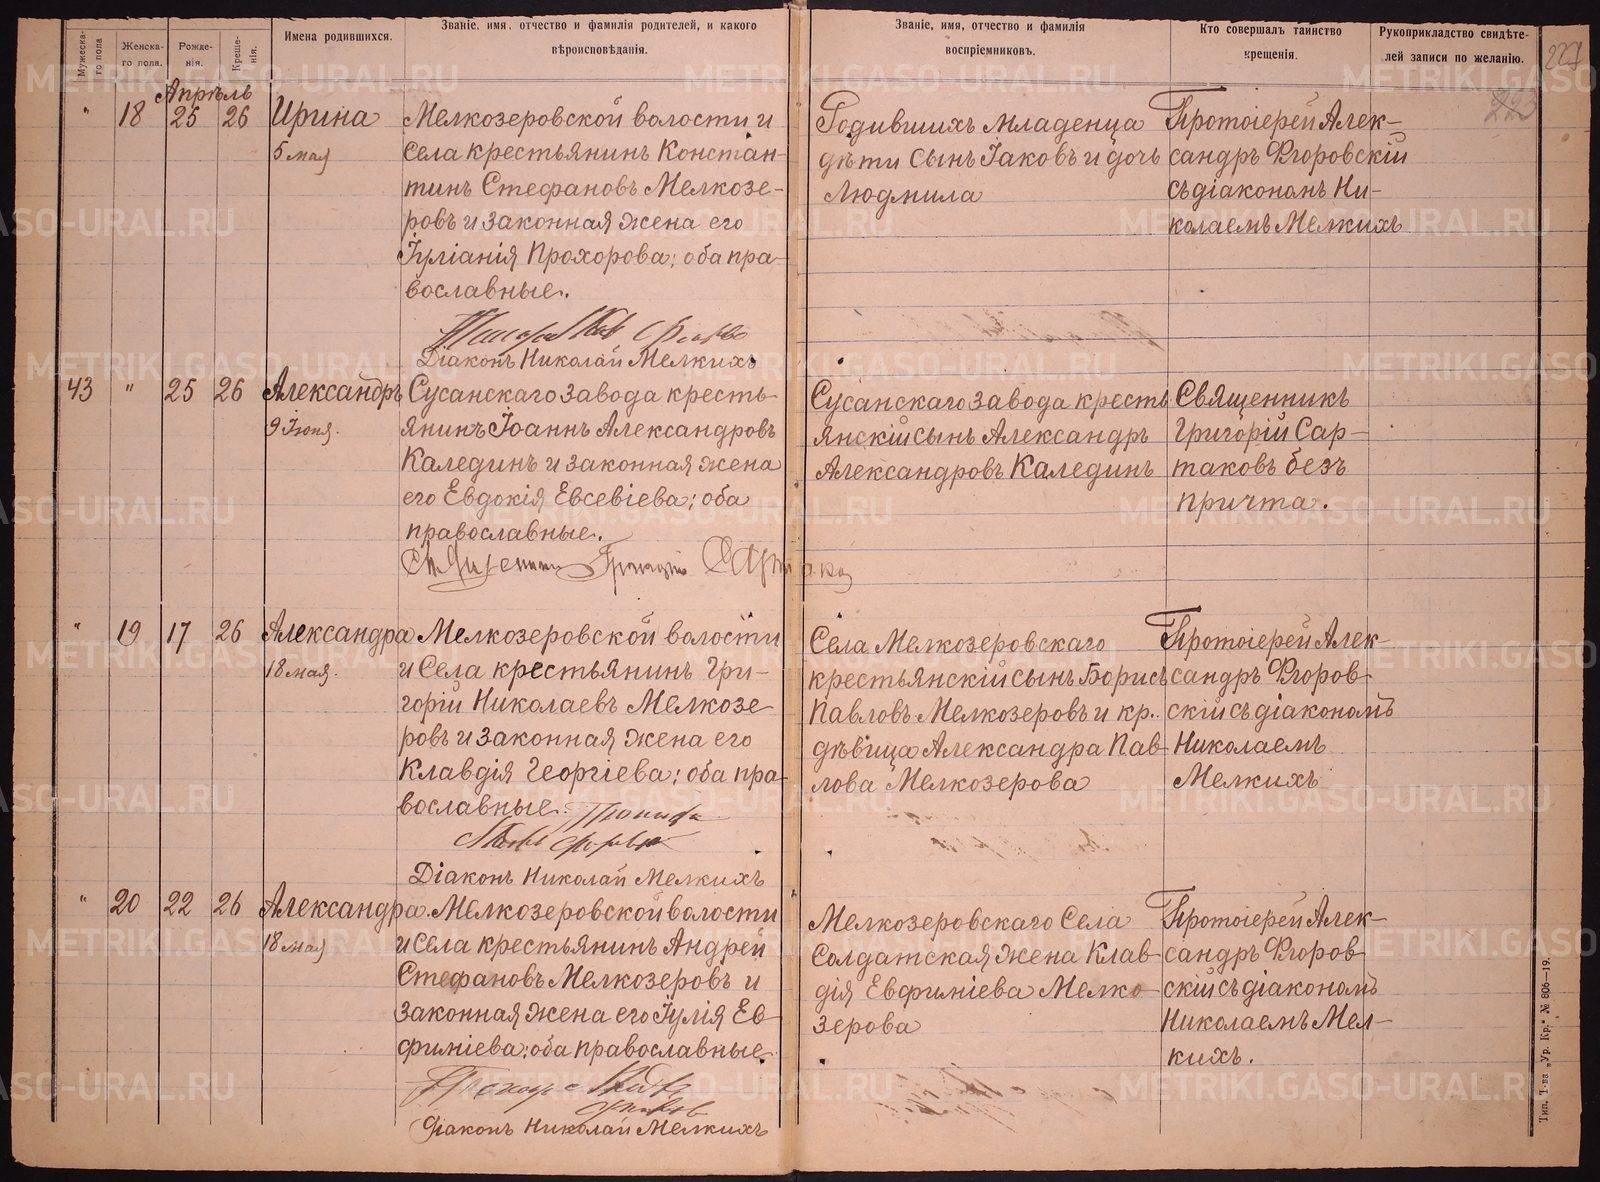 Мужеска-
го пола
Женска-
го пола.
Рожде-
нія.
Креще-
нія.
Имена родившихся.
Званіе, имя, отчество и фамилія родителей, и какого
вѣроисповѣданія.
Званіе, имя, отчество и фамилія
воспріемниковъ.
Кто совершалъ таинство
крещенія.
Рукоприкладство свидѣте-
лей записи по желанію.
Апрѣль
" 18 25 26
Ирина
5 мая
Мелкозеровской волости и
Села крестьянинъ Констан-
тинъ Стефановъ Мелкозе-
ровъ и законная жена его
Іуліанія Прохорова; оба пра-
вославные.
Діаконъ Николай Мелкихъ
Родившихъ Младенца
дѣти Сынъ Іаковъ и дочь
Людмила
Протоіерей Алек-
сандръ Флоровскій
съ діакономъ Ни-
колаемъ Мелкихъ
43 " 25 26
Александръ
9 Іюня.
Сусанскаго Завода кресть-
янинъ Іоаннъ Александровъ
Калединъ и законная жена
его Евдокія Евсевіева; оба
православные.
Священникъ Григорій Сартаковъ
Сусанскаго завода кресть
янскій сынъ Александръ
Александровъ Калединъ
Священникъ
Григорій Сар-
таковъ безъ
причта.
" 19 17 26
Александра
18 мая.
Мелкозеровской волости
и Села крестьянинъ Гри-
горій Николаевъ Мелкозе-
ровъ и законная жена его
Клавдія Георгіева; оба пра-
вославные.
Діаконъ Николай Мелкихъ
Села Мелкозеровскаго
крестьянскій сынъ Борисъ
Павловъ Мелкозеровъ и кр.
дѣвица Александра Пав-
лова Мелкозерова
Протоіерей Алек-
сандръ Флоров-
скій съ діакономъ
Николаемъ
Мелкихъ
" 20 22 26
Александра.
18 мая
Мелкозеровской волости
и Села крестьянинъ Андрей
Стефановъ Мелкозеровъ и
законная жена его Іулія Ев-
фиміева; оба православные.
Діаконъ Николай Мелкихъ
Мелкозеровскаго Села
Солдатская жена Клав-
дія Евфиміева Мелко-
зерова
Протоіерей Алек-
сандръ Флоров-
скій съ діакономъ
Николаемъ Мел-
кихъ.
Тип. Т-ва „Ур. Кр." № 806—19.
METRIKI.GASO-URAL.RU